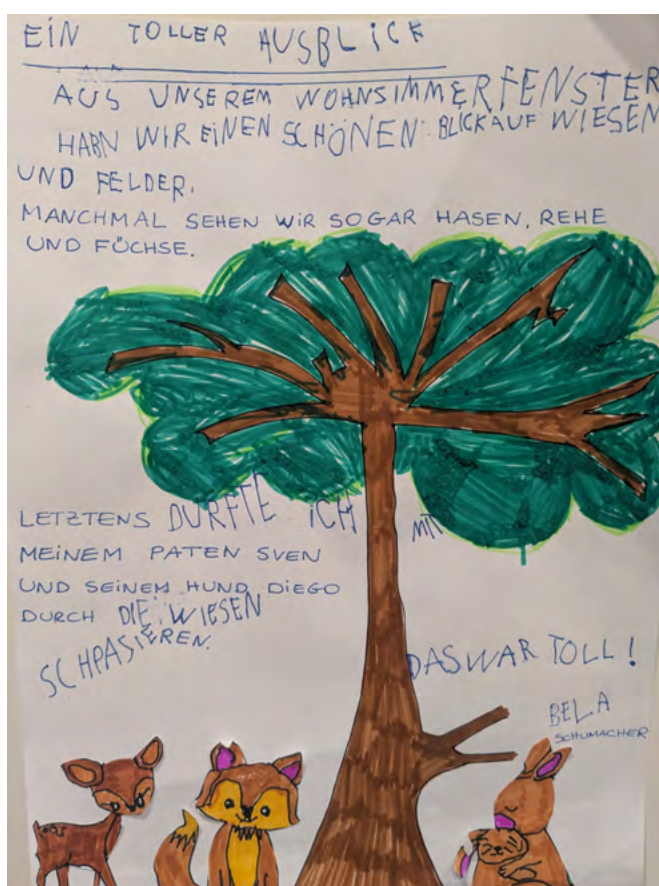 EIN TOLLER AUSBLICK
AUS UNSEREM WOHNSIMMERFENSTER
HABN WIR EINEN SCHÖNEN BLICK AUF WIESEN
UND FELDER.
MANCHMAL SEHEN WIR SOGAR HASEN, REHE
UND FÜCHSE.
LETZTENS DURFTE ICH MIT
MEINEM PATEN SVEN
UND SEINEM HUND DIEGO
DURCH DIE WIESEN
SCHPASIEREN.
DAS WAR TOLL!
BELA
SCHUMACHER